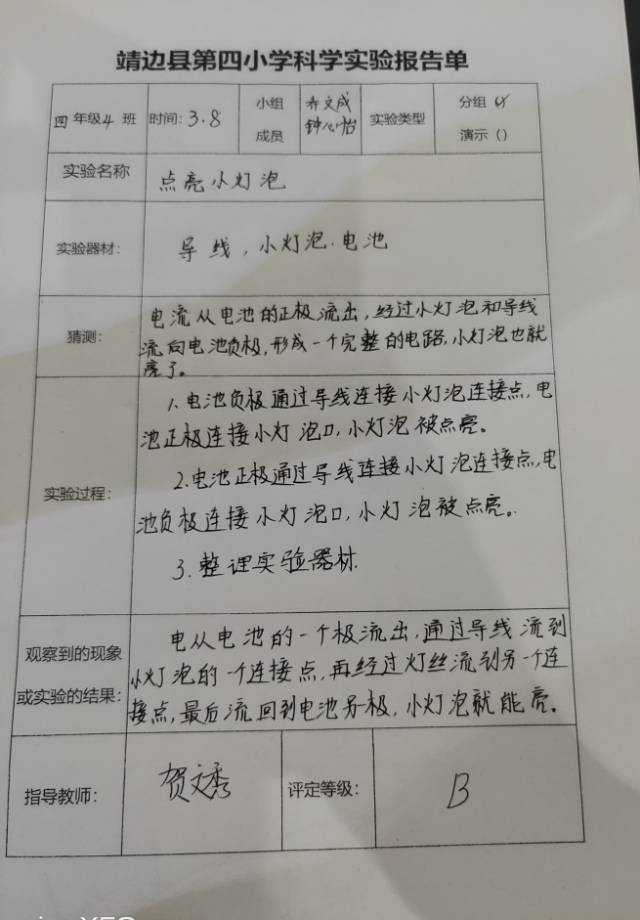 靖边县第四小学科学实验报告单
四年级4班 时间:3.8 小组成员 乔文成 钟心怡 实验类型 分组(√) 演示()
实验名称 点亮小灯泡
实验器材: 导线,小灯泡.电池
猜测: 电流从电池的正极流出,经过小灯泡和导线
流向电池负极,形成一个完整的电路,小灯泡也就
亮了。
实验过程: 1.电池负极通过导线连接小灯泡连接点,电
池正极连接小灯泡口,小灯泡被点亮。
2.电池正极通过导线连接小灯泡连接点,电
池负极连接小灯泡口,小灯泡被点亮。
3.整理实验器材.
观察到的现象
或实验的结果:
电从电池的一个极流出,通过导线流到
小灯泡的一个连接点,再经过灯丝流到另一个连
接点,最后流回到电池另极,小灯泡就能亮。
指导教师: 贺文秀 评定等级: B